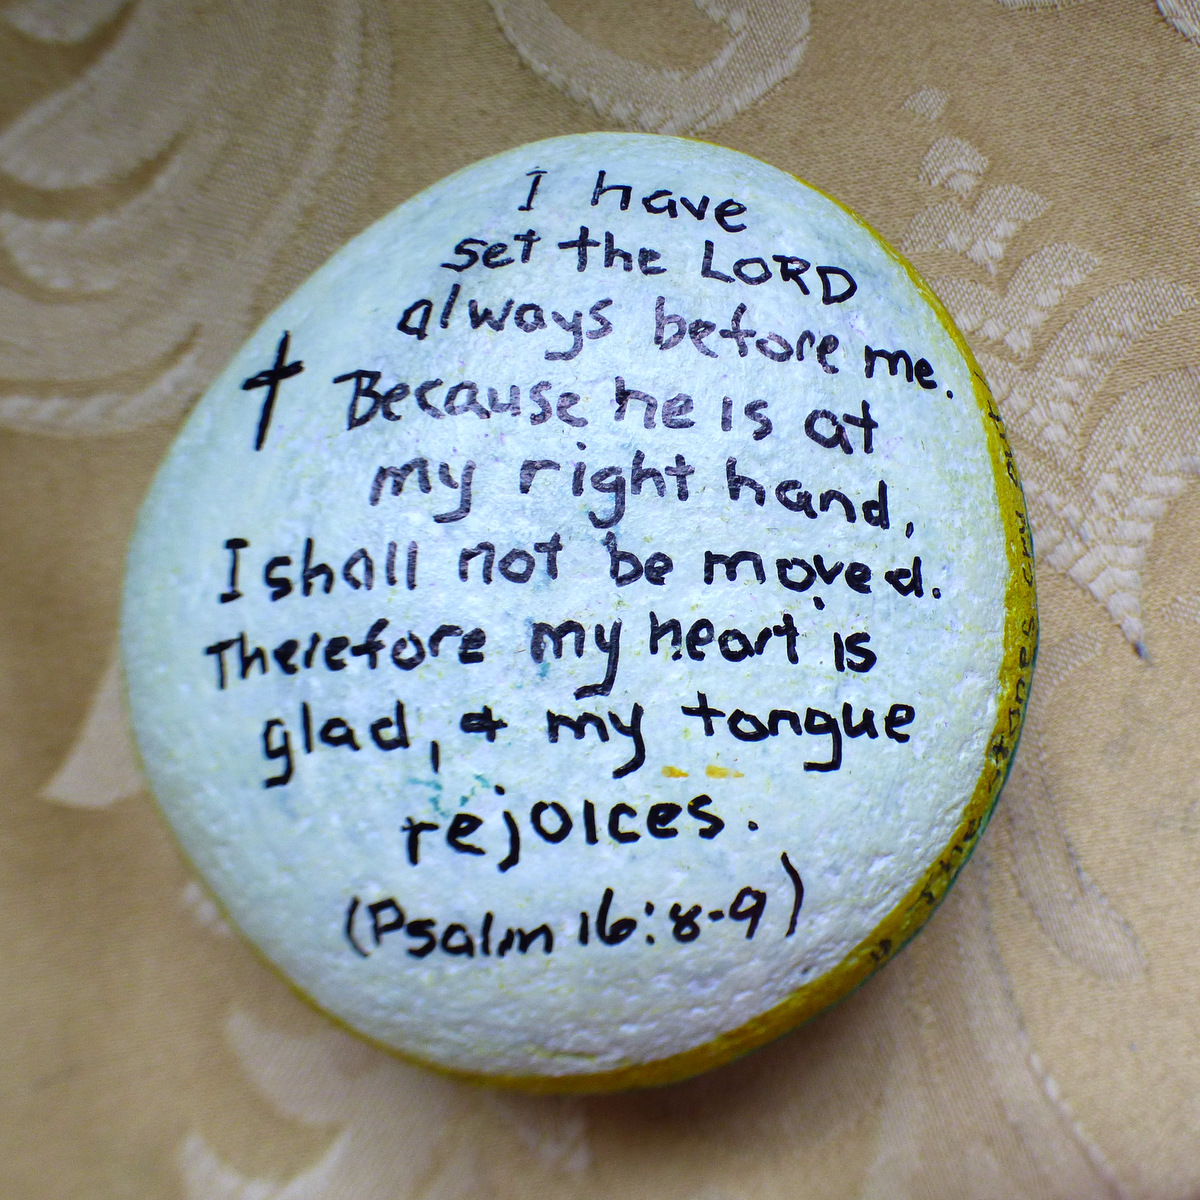 I have
set the LORD
always before me.
† Because he is at
my right hand,
I shall not be moved.
Therefore my heart is
glad, & my tongue
rejoices.
(Psalm 16:8-9)
the stones cry out